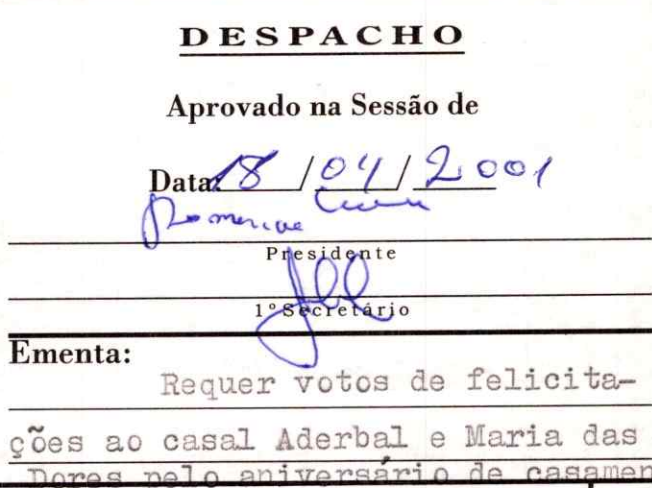 DESPACHO
Aprovado na Sessão de
Data: 18/04/2001
Presidente
1º Secretário
Ementa:
Requer votos de felicita-
ções ao casal Aderbal e Maria das
Dores pelo aniversário de casamen